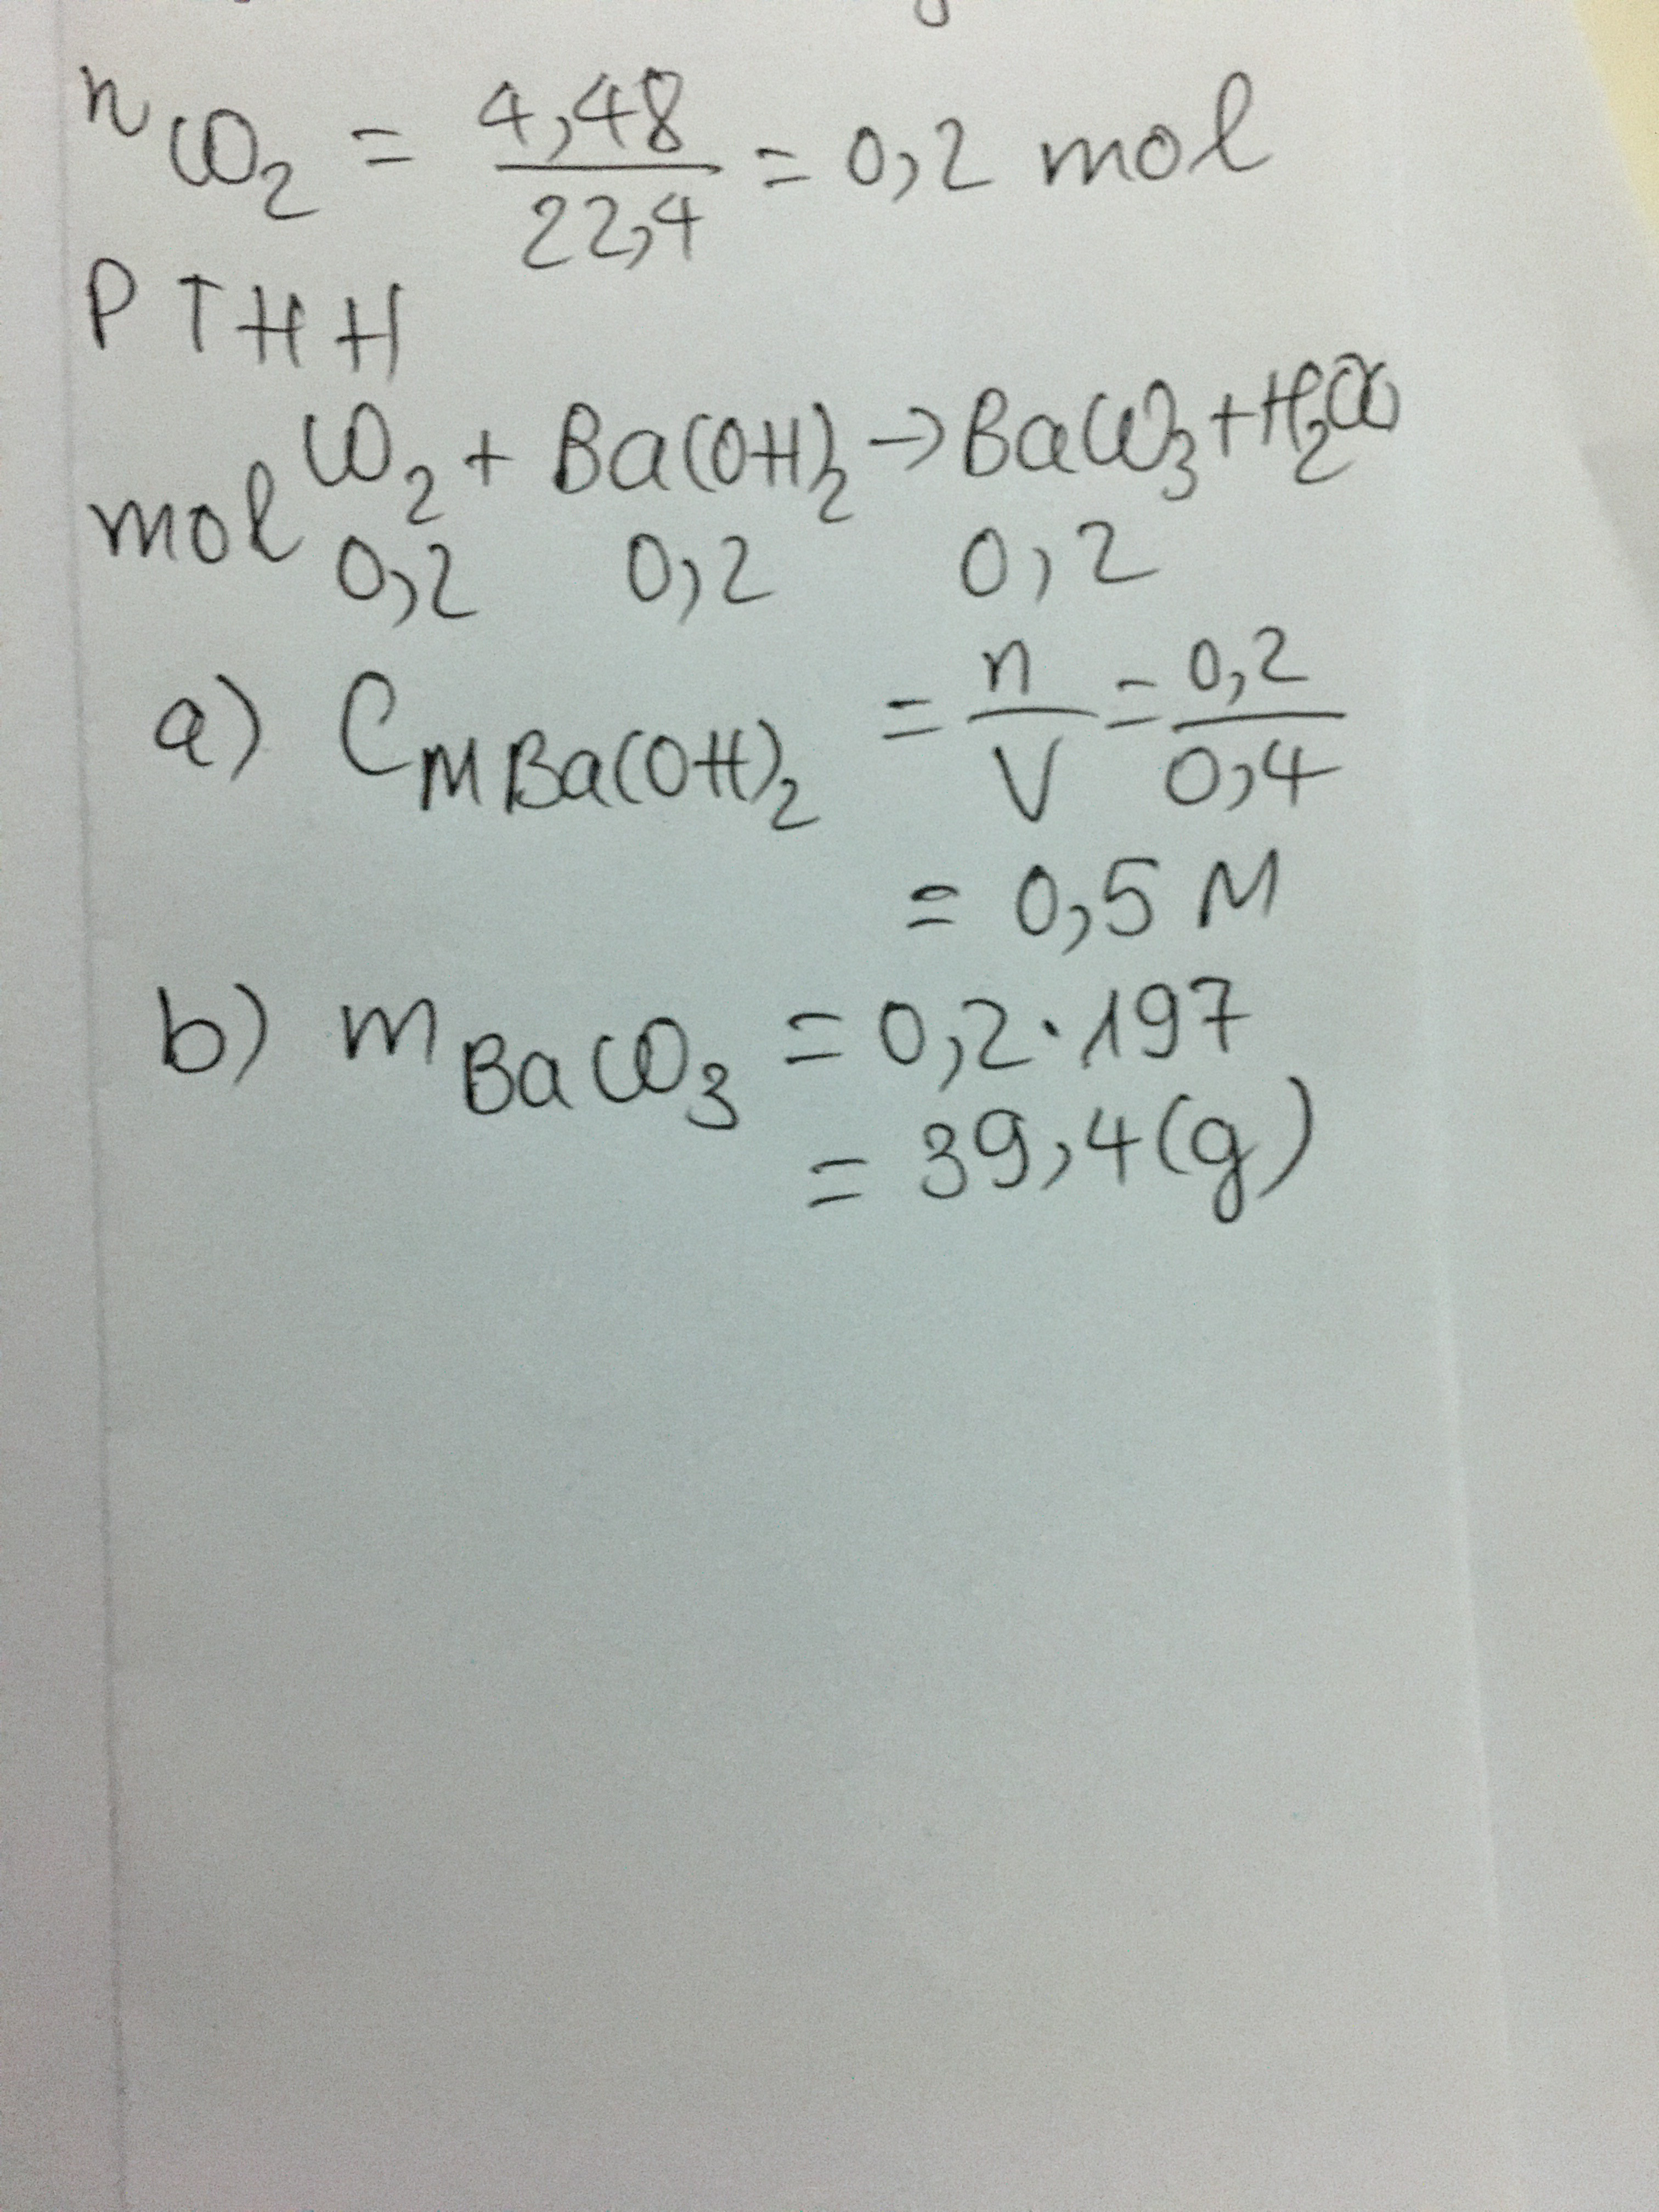 n CO₂ = 4,48 / 22,4 = 0,2 mol
PTHH
CO₂ + Ba(OH)₂ → BaCO₃ + H₂O
mol 0,2 0,2 0,2
a) C M Ba(OH)₂ = n / V = 0,2 / 0,4
= 0,5 M
b) m BaCO₃ = 0,2 . 197
= 39,4 (g)